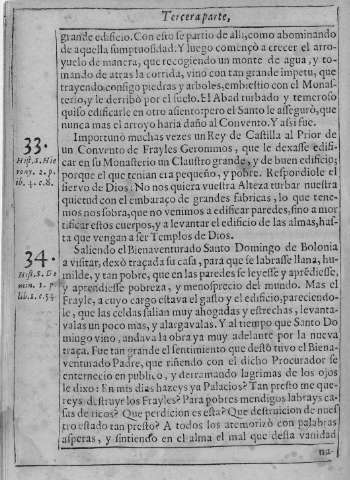 Tercera parte,
grande edificio. Con esto se partio de alli, como abominando
de aquella sumptuosidad: Y luego començò a crecer el arro-
yuelo de manera, que recogiendo un monte de agua, y to-
mando de atras la corrida, vino con tan grande impetu, que
trayendo consigo piedras y arboles, embistio con el Monas-
terio, y le derribò por el suelo. El Abad turbado y temeroso
quiso edificarle en otro asiento: pero el Santo le assegurò, que
nunca mas el arroyo haria daño al Convento. Y assi fue.
33.
Importunò muchas vezes un Rey de Castilla al Prior de
un Convento de Frayles Geronimos, que le dexasse edifi-
car en su Monasterio un Claustro grande, y de buen edificio;
porque el que tenian era pequeño, y pobre. Respondiole el
siervo de Dios: No nos quiera vuestra Alteza turbar nuestra
quietud con el embaraço de grandes fabricas, lo que tene-
mos nos sobra, que no venimos a edificar paredes, sino a mor
tificar estos cuerpos, y a levantar el edificio de las almas, has-
ta que vengan a ser Templos de Dios.
34.
Saliendo el Bienaventurado Santo Domingo de Bolonia
a visitar, dexò traçada su casa, para que se labrasse llana, hu-
milde, y tan pobre, que en las paredes se leyesse y aprēdiesse,
y aprendiesse pobreza, y menosprecio del mundo. Mas el
Frayle, a cuyo cargo estava el gasto y el edificio, pareciendo-
le, que las celdas salian muy ahogadas y estrechas, levanta-
valas un poco mas, y alargavalas. Y al tiempo que Santo Do
mingo vino, andava la obra ya muy adelante por la nueva
traça. Fue tan grande el sentimiento que desto tuvo el Biena-
venturado Padre, que riñendo con el dicho Procurador se
enternecio en publico, y derramando lagrimas de los ojos
le dixo: En mis dias hazeys ya Palacios? Tan presto me que-
reys destruyr los Frayles? Para pobres mendigos labrays ca-
sas de ricos? Que perdicion es esta? Que destruicion de nues
tro estado tan presto? A todos los atemorizò con palabras
asperas, y sintiendo en el alma el mal que desta vanidad
na-